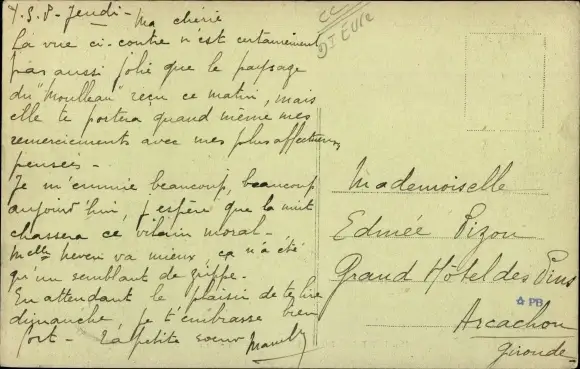 Y.S.P. Jeudi - Ma chérie
La vue ci-contre n'est certainement
pas aussi jolie que le paysage
du "Moulleau" reçu ce matin, mais
elle te portera quand même mes
remerciements avec mes plus affectueuses
pensées -
Je m'ennuie beaucoup, beaucoup
aujourd'hui, j'espère que la nuit
chassera ce vilain moral -
Melle va mieux, ça n'a été
qu'un semblant de grippe.
En attendant le plaisir de te lire
dimanche, je t'embrasse bien
fort - Ta petite soeur
Mademoiselle
Edmée Pizon
Grand Hôtel des Pins
PB
Arcachon
Gironde -